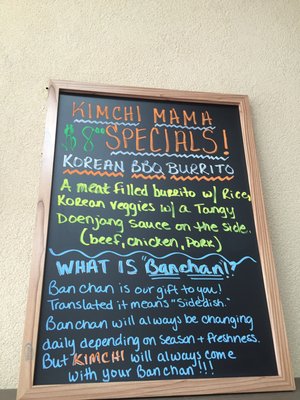 KIMCHI MAMA
$8⁰⁰ SPECIALS!
KOREAN BBQ BURRITO
A meat filled burrito w/ Rice,
Korean veggies w/ a Tangy
Doenjang sauce on the side.
(beef, chicken, Pork)
WHAT IS "Banchan"?
Ban chan is our gift to you!
Translated it means "Sidedish."
Banchan will always be changing
daily depending on season + freshness.
But KIMCHI will always come
with your Banchan!!!